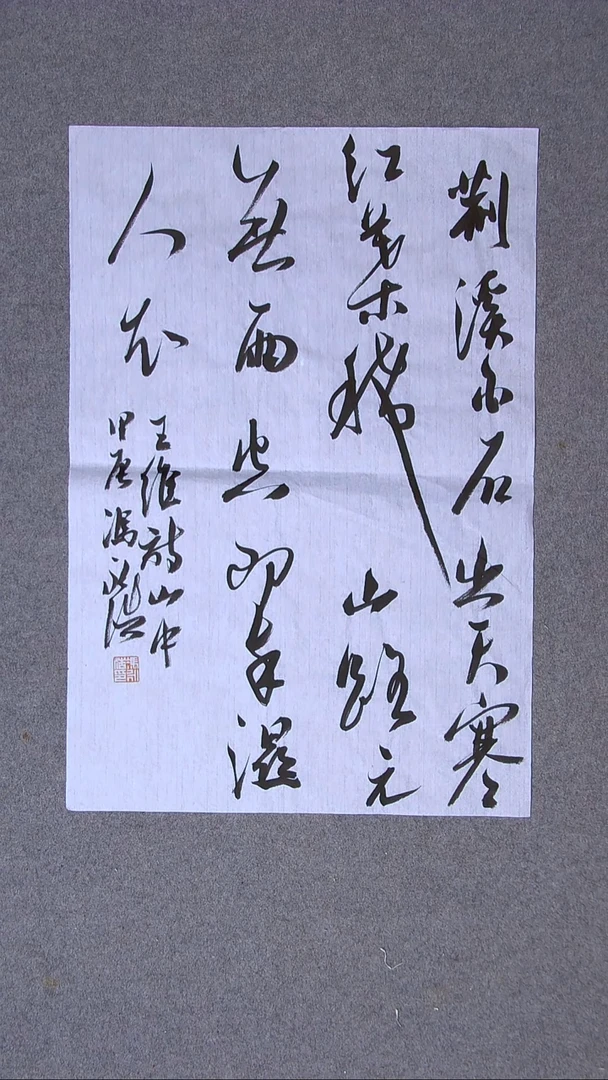 荆溪白石出天寒
红葉稀山路元
無雨空翠湿
人衣
王維詩山中
甲辰馮